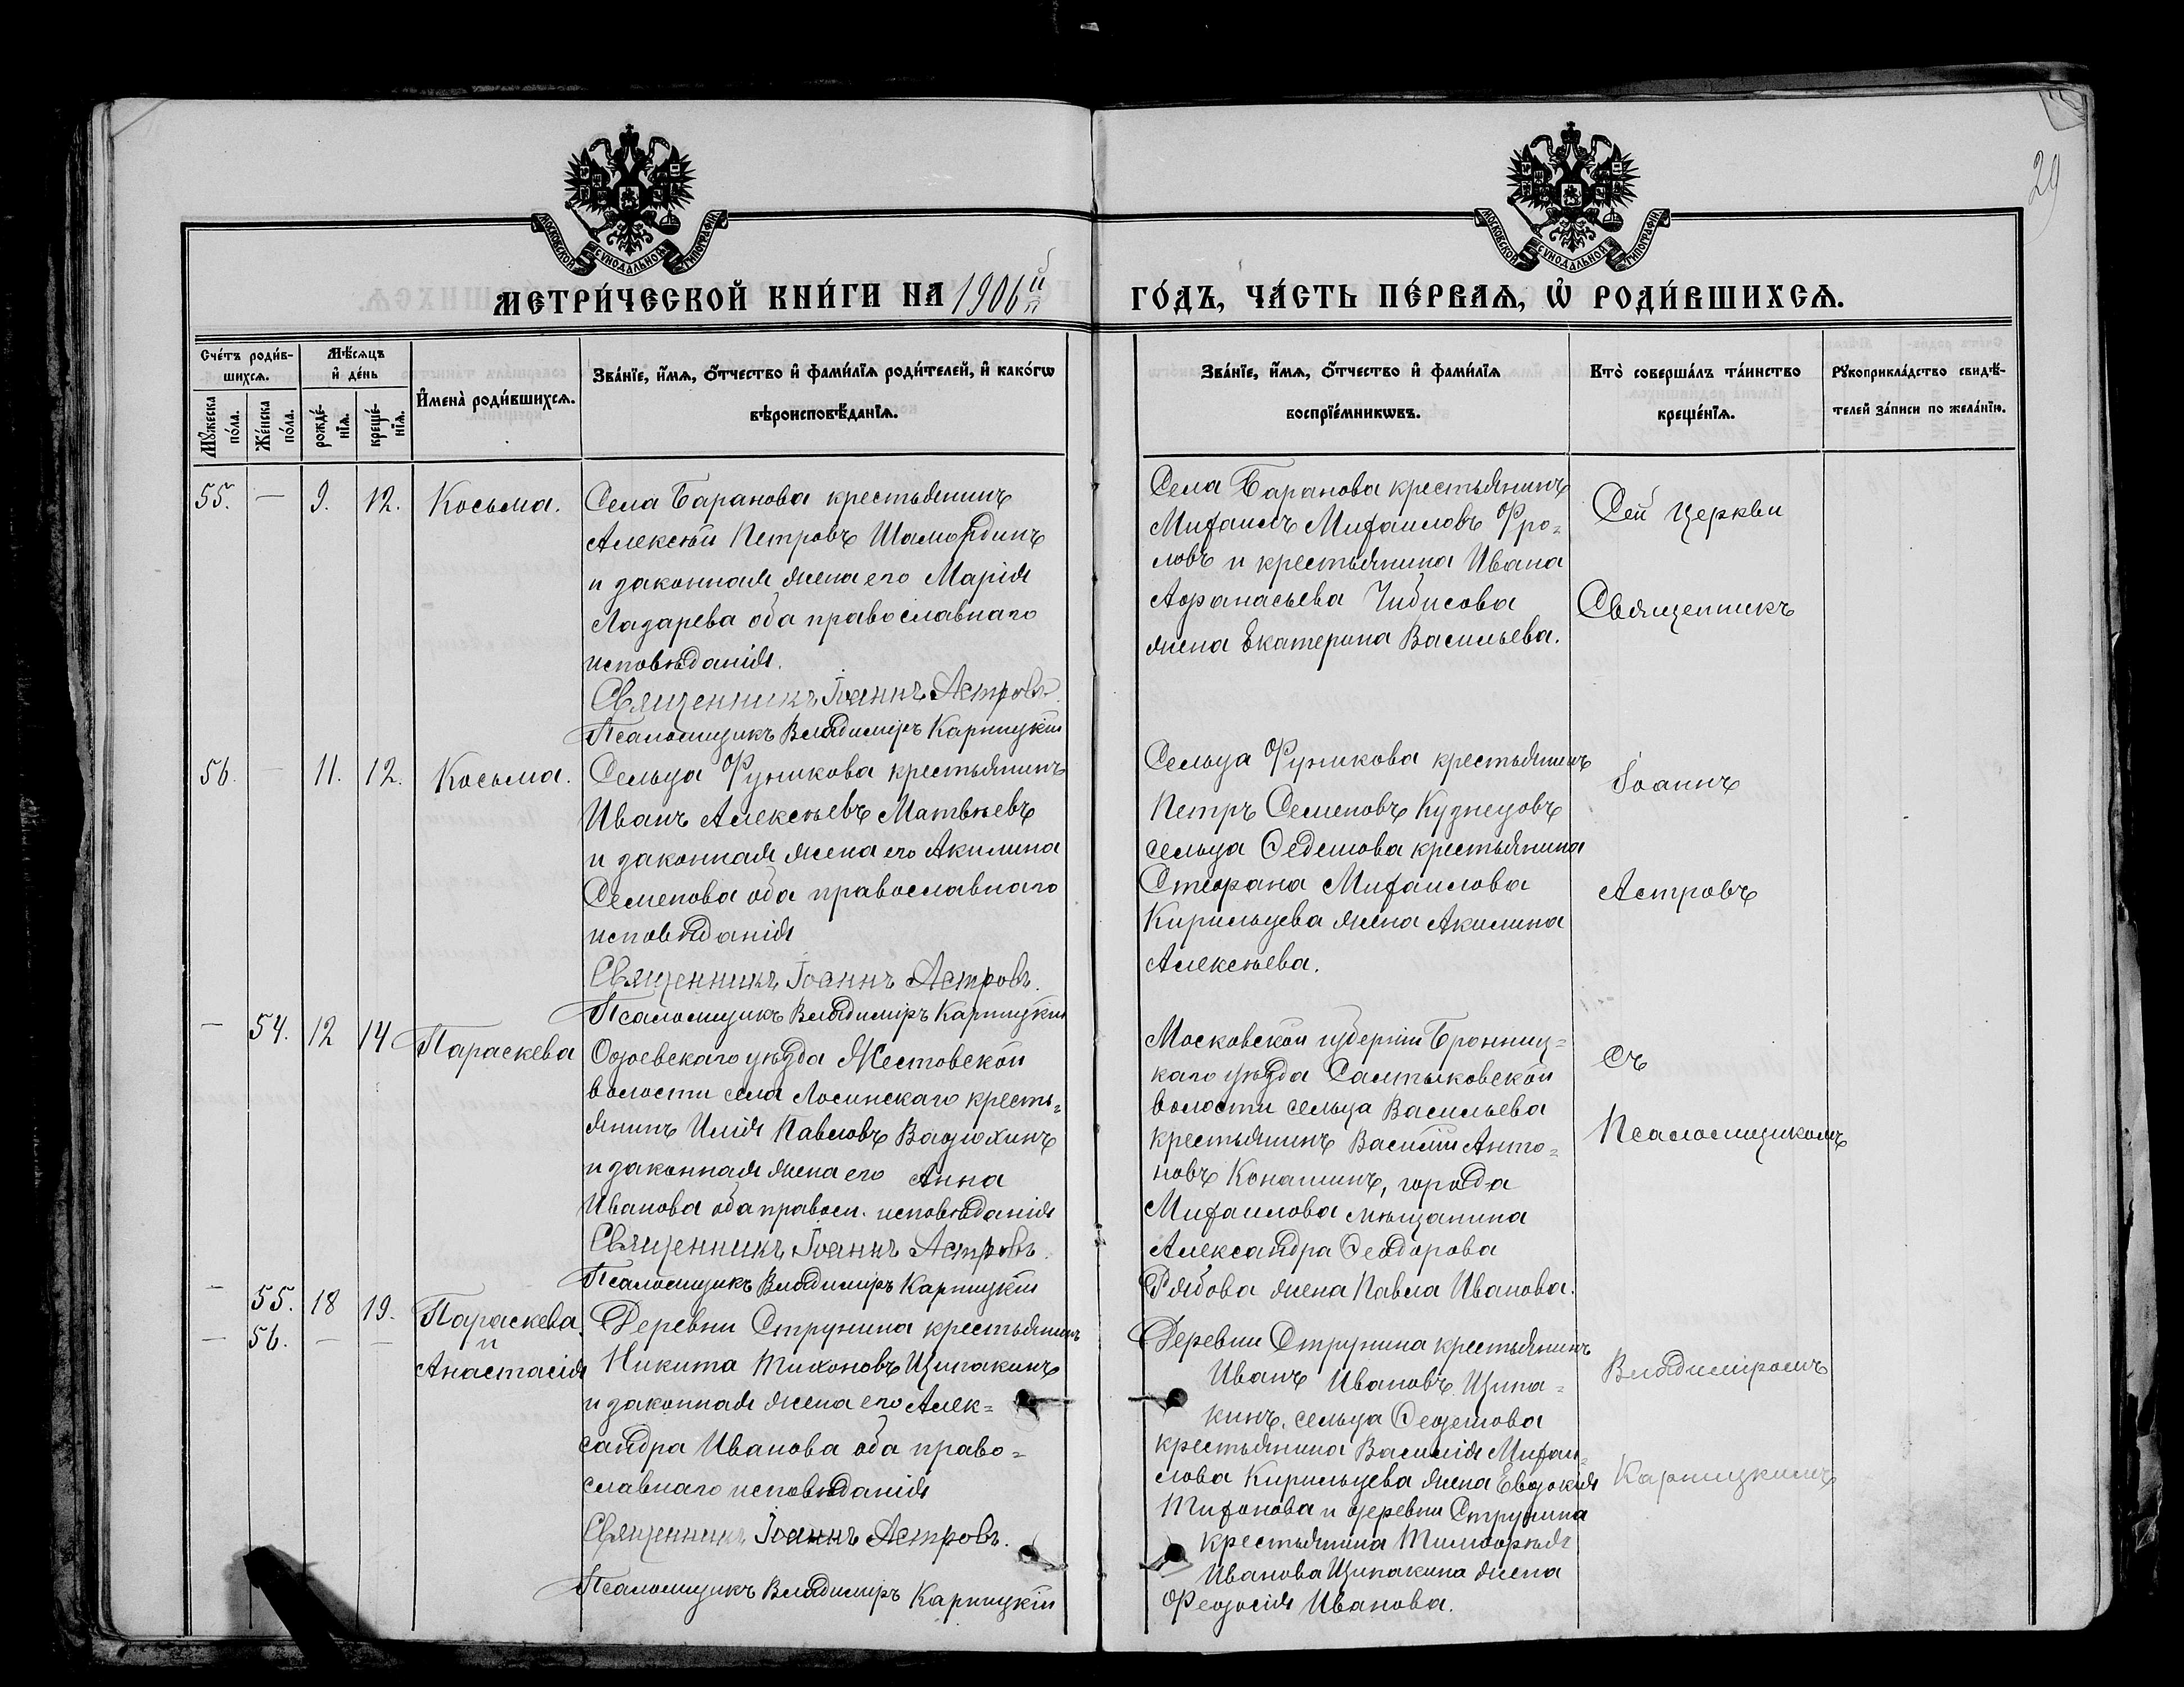 29
МОСКОВСКОЙ СѴНОДАЛЬНОЙ ТИПОГРАФІИ
МОСКОВСКОЙ СѴНОДАЛЬНОЙ ТИПОГРАФІИ
МЕТРИ́ЧЕСКОЙ КНИ́ГИ НА 1906й
ГО́ДЪ, ЧА́СТЬ ПЕ́РВАѦ, Ѡ҆ РОДИ́ВШИХСѦ.
Сче́тъ роди́в-
шихсѧ.
Мꙋ́жеска по́ла.
Же́нска по́ла.
Мѣ́сѧцъ
и҆ де́нь
рожде́-
нїѧ.
креще́-
нїѧ.
И҆мена̀ роди́вшихсѧ.
Зва́нїе, и҆́мѧ, о҆́тчество и҆ фами́лїѧ роди́телей, и҆ како́гѡ
вѣроисповѣ́данїѧ.
Зва́нїе, и҆́мѧ, о҆́тчество и҆ фами́лїѧ
воспрїе́мникѡвъ.
Кто̀ соверша́лъ та́инство
креще́нїѧ.
Рꙋкоприкла́дство свидѣ́-
телей за́писи по жела́нїю.
55. — 9. 12. Косьма.
Села Баранова крестьянинъ
Алексѣй Петровъ Шамординъ
и законная жена его Марія
Лазарева оба православнаго
исповѣданія.
Священникъ Іоаннъ Астровъ.
Псаломщикъ Владиміръ Карницкій
Села Баранова крестьянинъ
Михаилъ Михаиловъ Фро=
ловъ и крестьянина Ивана
Афанасьева Чибисова
жена Екатерина Васильева.
Сей церкви
Священникъ
56. — 11. 12. Косьма.
Сельца Фуникова крестьянинъ
Иванъ Алексѣевъ Матвѣевъ
и законная жена его Акилина
Семенова оба православнаго
исповѣданія
Священникъ Іоаннъ Астровъ.
Псаломщикъ Владиміръ Карницкій
Сельца Фуникова крестьянинъ
Петръ Семеновъ Кузнецовъ
сельца Федешова крестьянина
Стефана Михаилова
Кирильцева жена Акилина
Алексѣева.
Іоаннъ
Астровъ
— 54. 12 14 Параскева
Одоевскаго уѣзда Жестовской
волости села Лосинскаго кресть=
янинъ Илія Павловъ Вадюхинъ
и законная жена его Анна
Иванова оба правосл. исповѣданія
Священникъ Іоаннъ Астровъ.
Псаломщикъ Владиміръ Карницкій
Московской губерніи Бронниц=
каго уѣзда Салтыковской
волости сельца Васильева
крестьянинъ Василій Анто=
новъ Конашинъ, города
Михаилова мѣщанина
Александра Феодорова
Рябова жена Павла Иванова.
съ
Псаломщикомъ
— 55. 18 19. Параскева
— 56. — — и
Анастасія
Деревни Струнина крестьянинъ
Никита Тихоновъ Щипакинъ
и законная жена его Алек=
сандра Иванова оба право=
славнаго исповѣданія
Священникъ Іоаннъ Астровъ.
Псаломщикъ Владиміръ Карницкій
Деревни Струнина крестьянинъ
Иванъ Ивановъ Щипа=
кинъ, сельца Федешова
крестьянина Василія Михаи=
лова Кирильцева жена Евдокія
Тихонова и деревни Струнина
крестьянина Тимофея
Иванова Щипакина жена
Феодосія Иванова.
Владиміромъ
Карницкимъ